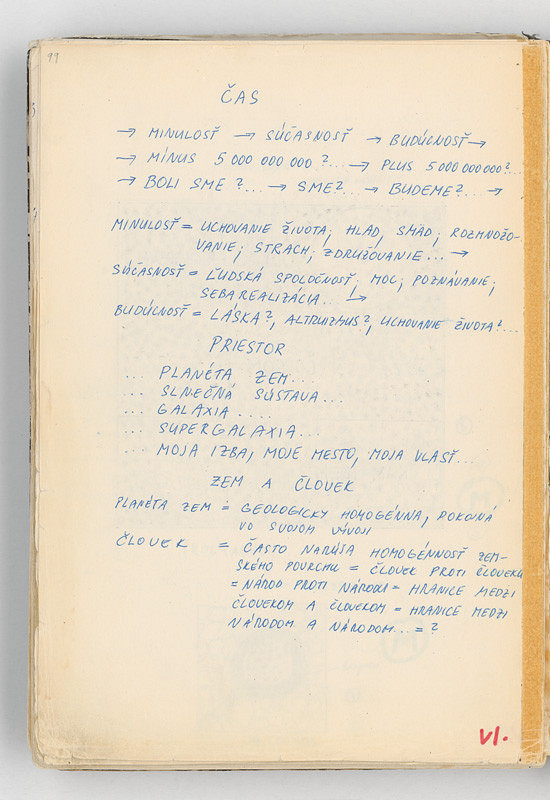 99
ČAS
→ MINULOSŤ → SÚČASNOSŤ → BUDÚCNOSŤ →
→ MÍNUS 5 000 000 000 ?... → PLUS 5 000 000 000?..
→ BOLI SME ?... → SME?... → BUDEME?... →
MINULOSŤ = UCHOVANIE ŽIVOTA; HLAD, SMÄD; ROZMNOŽO-
VANIE; STRACH, ZDRUŽOVANIE... →
SÚČASNOSŤ = ĽUDSKÁ SPOLOČNOSŤ; MOC; POZNÁVANIE;
SEBAREALIZÁCIA.. →
BUDÚCNOSŤ = LÁSKA?, ALTRUIZMUS?, UCHOVANIE ŽIVOTA?...
PRIESTOR
... PLANÉTA ZEM...
... SLNEČNÁ SÚSTAVA...
... GALAXIA....
... SUPERGALAXIA...
... MOJA IZBA, MOJE MESTO, MOJA VLASŤ...
ZEM A ČLOVEK
PLANÉTA ZEM = GEOLOGICKY HOMOGÉNNA, POKOJNÁ
VO SVOJOM VÝVOJI
ČLOVEK = ČASTO NARÚŠA HOMOGÉNNOSŤ ZEM-
SKÉHO POVRCHU = ČLOVEK PROTI ČLOVEKU
= NÁROD PROTI NÁRODU = HRANICE MEDZI
ČLOVEKOM A ČLOVEKOM = HRANICE MEDZI
NÁRODOM A NÁRODOM... = ?
VI.